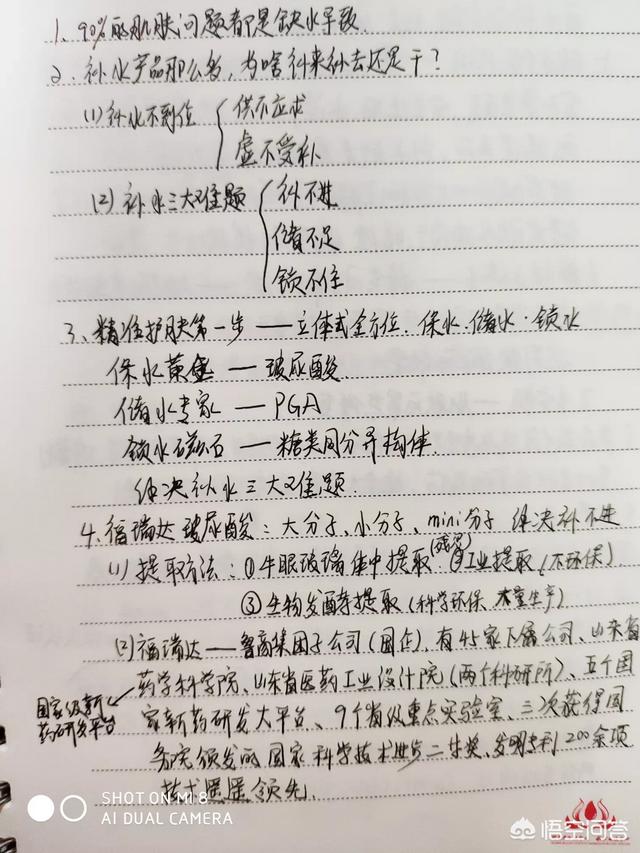 1、90%的肌肤问题都是缺水导致.
2、补水产品那么多，为啥补来补去还是干？
(1)补水不到位 { 供不应求
虚不受补
(2)补水三大难题 { 补不进
储不足
锁不住
3、精准护肤第一步——立体式全方位.保水.储水.锁水
保水黄金—玻尿酸
储水专家—PGA
锁水磁石—糖类同分异构体.
解决补水三大难题.
4、福瑞达玻尿酸：大分子、小分子、mini分子 解决补不进
(1)提取方法：①牛眼玻璃体中提取(残忍) ②工业提取(不环保)
③生物发酵提取(科学环保、大量生产)
(2)福瑞达——鲁商集团子公司(国企)，有45家下属公司、山东省
药学科学院、山东省医药工业设计院(两个科研所)、五个国
国家级新
药研发平台
家新药研发大平台、9个省级重点实验室、三次获得国
务院颁发的国家科学技术进步二等奖、发明专利200余项
技术遥遥领先.
SHOT ON MI 8
AI DUAL CAMERA
悟空问答